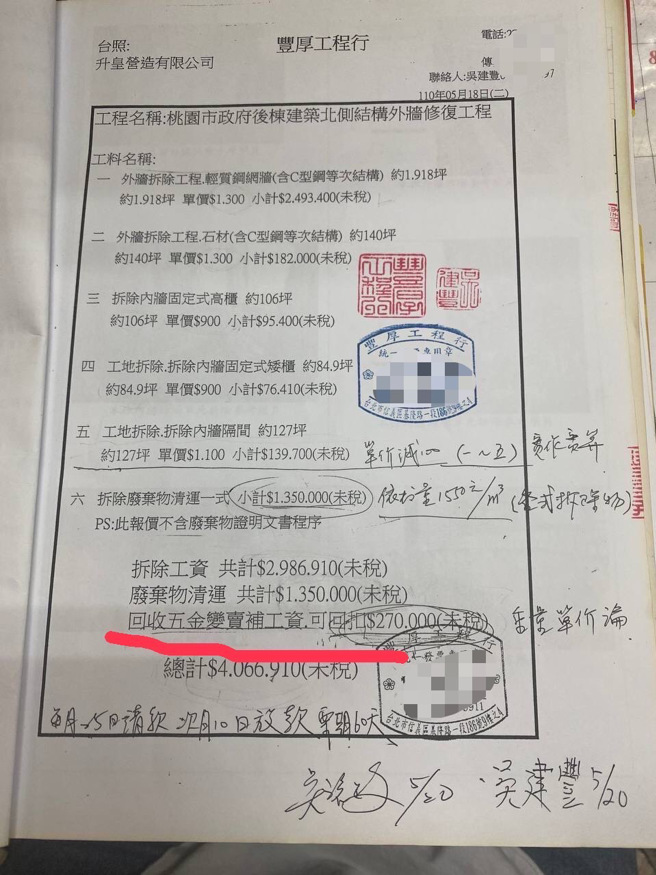 台照:
豐厚工程行
電話:
升皇營造有限公司
傳
聯絡人:吳建豐
110年05月18日(二)
工程名稱:桃園市政府後棟建築北側結構外牆修復工程
工料名稱:
一 外牆拆除工程.輕質鋼網牆(含C型鋼等次結構) 約1.918坪
約1.918坪 單價$1.300 小計$2.493.400(未稅)
二 外牆拆除工程.石材(含C型鋼等次結構) 約140坪
約140坪 單價$1.300 小計$182.000(未稅)
三 拆除內牆固定式高櫃 約106坪
約106坪 單價$900 小計$95.400(未稅)
四 工地拆除.拆除內牆固定式矮櫃 約84.9坪
約84.9坪 單價$900 小計$76.410(未稅)
豐厚工程行
統一
專用章
台北市信義區基隆路一段
五 工地拆除.拆除內牆隔間 約127坪
約127坪 單價$1.100 小計$139.700(未稅) 單价減100 (一~五) 實作實算
六 拆除廢棄物清運一式 小計$1.350.000(未稅) 依打量1550元/m³
PS:此報價不含廢棄物證明文書程序
拆除工資 共計$2.986.910(未稅)
廢棄物清運 共計$1.350.000(未稅)
回收五金變賣補工資.可回扣$270.000(未稅) 重量單价論
總計$4.066.910(未稅)
台北市信義區基隆路一段
每月25日請款 次月10日放款 票期60天
5/20 吳建豐 5/20